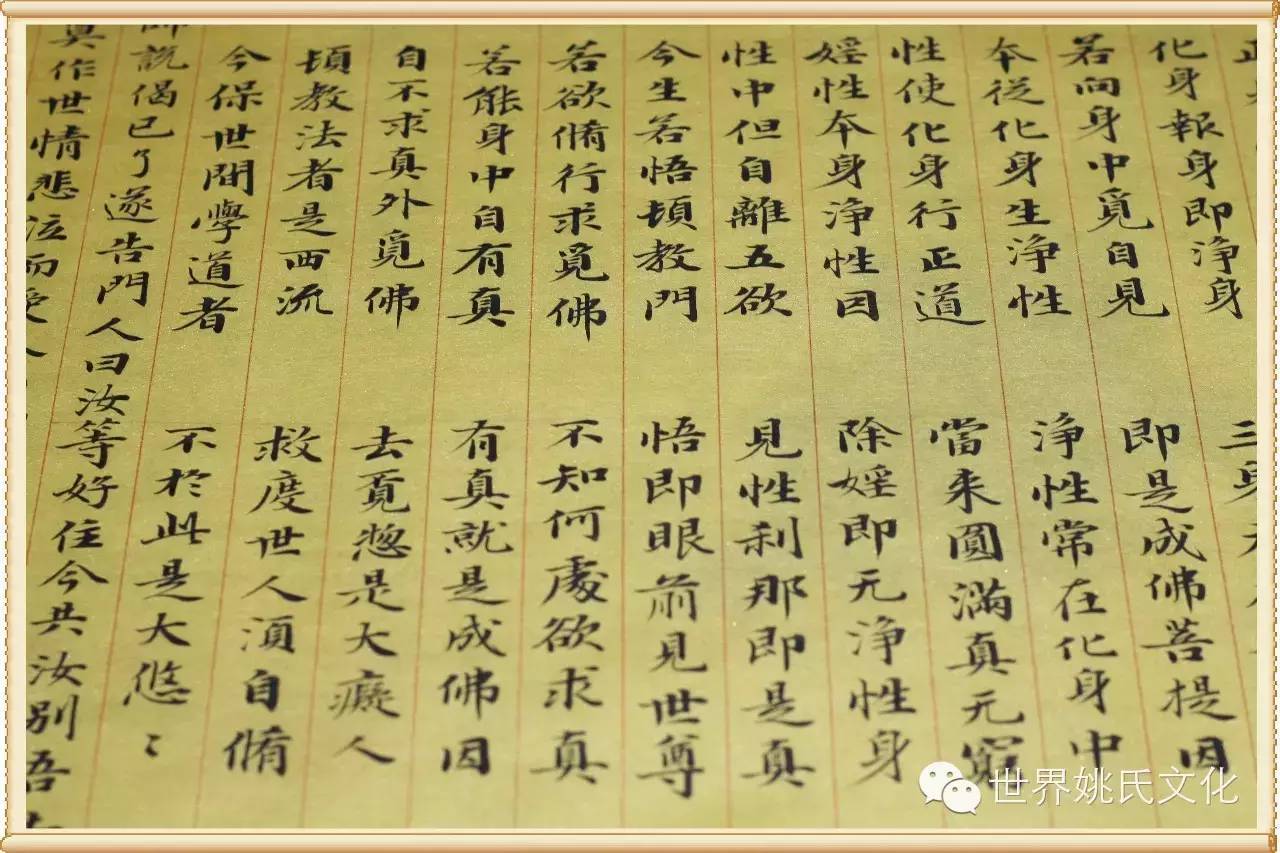 化身報身即浄身　三身
若向身中覓自見　即是成佛菩提因
本從化身生浄性　浄性常在化身中
性使化身行正道　當来圓滿真无窮
婬性本身浄性因　除婬即无浄性身
性中但自離五欲　見性利那即是真
今生若悟頓教門　悟即眼前見世尊
若欲脩行求覓佛　不知何處欲求真
若能身中自有真　有真就是成佛因
自不求真外覓佛　去覔惣是大癡人
頓教法者是西流　救度世人須自脩
今保世間學道者　不於此是大悠〻
師説偈已了遂告門人曰汝等好住今共汝別吾
莫作世情悲泣而受人
世界姚氏文化